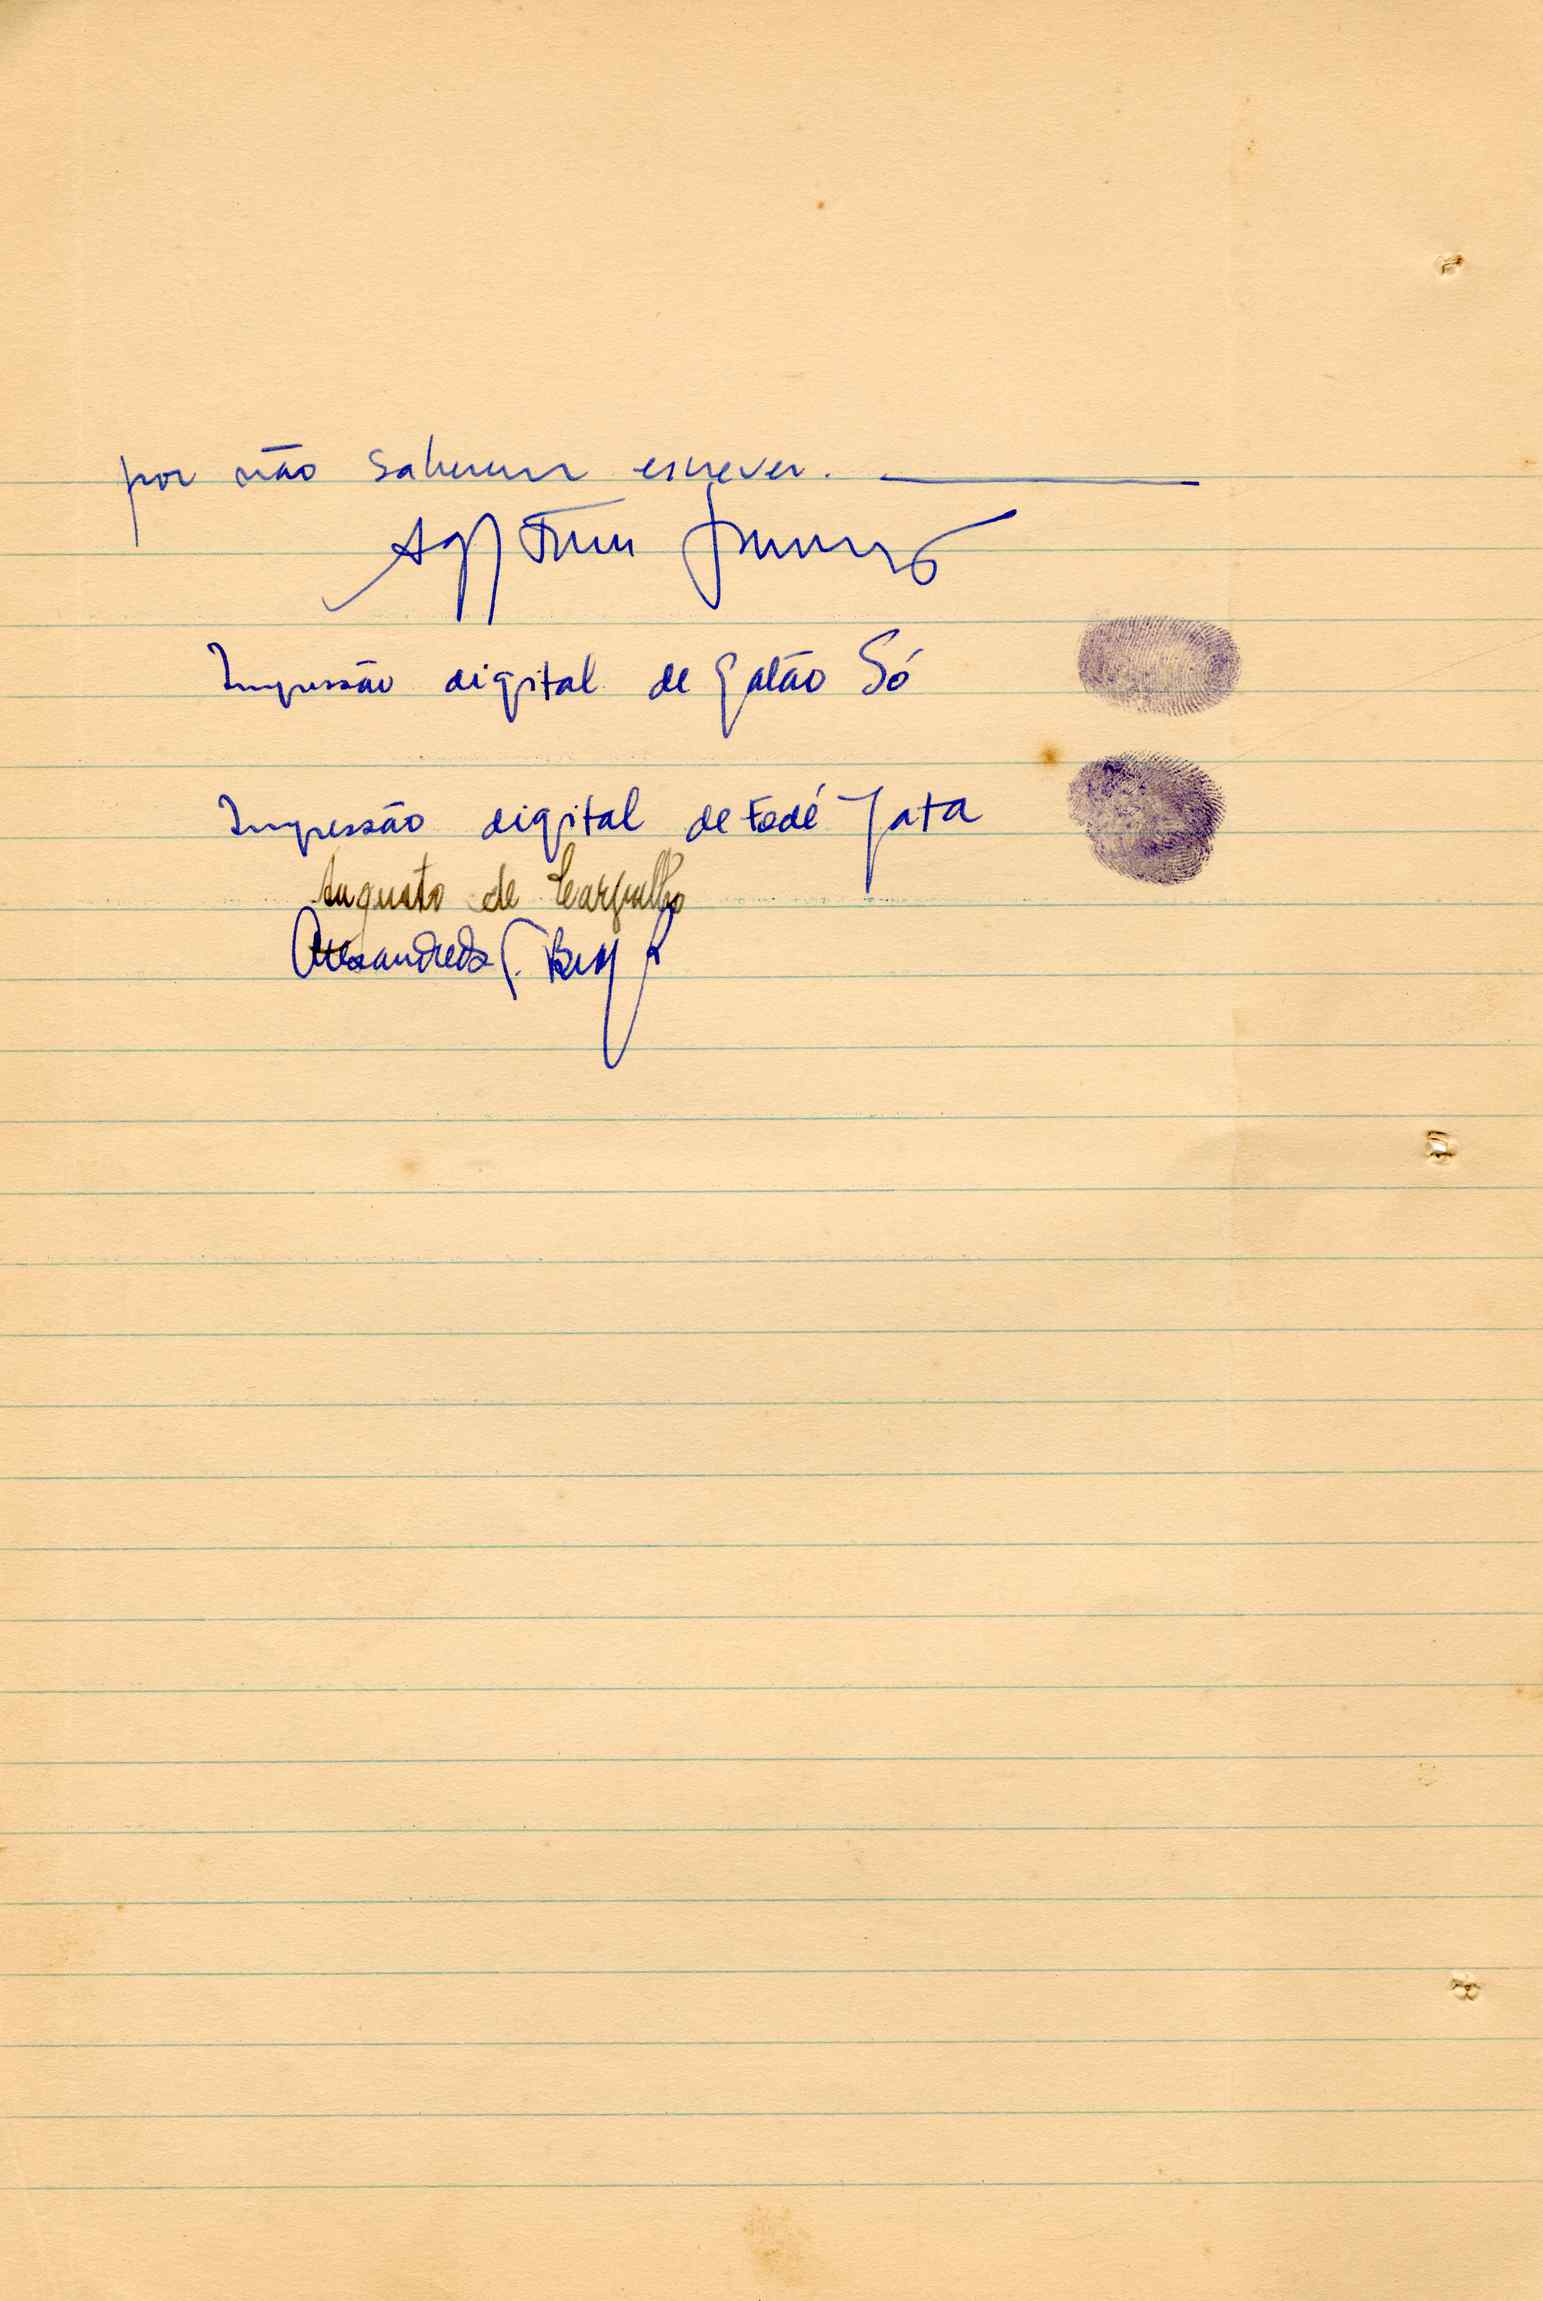 por não saberem escrever.
Impressão digital de Galão Só
Impressão digital de Fodé Jata
Augusto de Carvalho